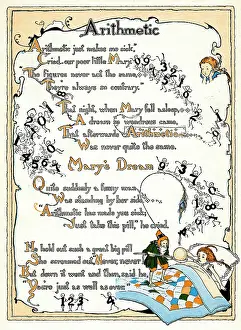 Arithmetic
"Arithmetic just makes me sick,"
Cried our poor little Mary.
The figures never act the same,
They're always so contrary.
That night, when Mary fell asleep,
A dream so wondrous came,
That afterwards Arithmetic
Was never quite the same.
Mary's Dream
Quite suddenly a funny man
Was standing by her side,
"Arithmetic has made you sick,
Just take this pill," he cried.
He held out such a great big pill
She screamed out, "Never, never,"
But down it went and then, said he,
"You're just as well as ever."